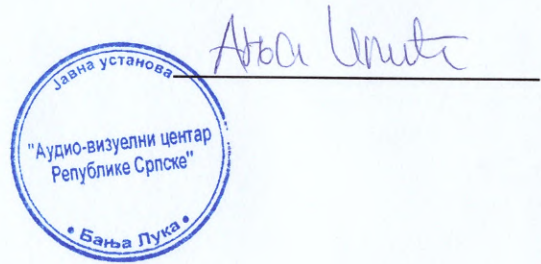 Јавна установа
"Аудио-визуелни центар
Републике Српске"
• Бања Лука •